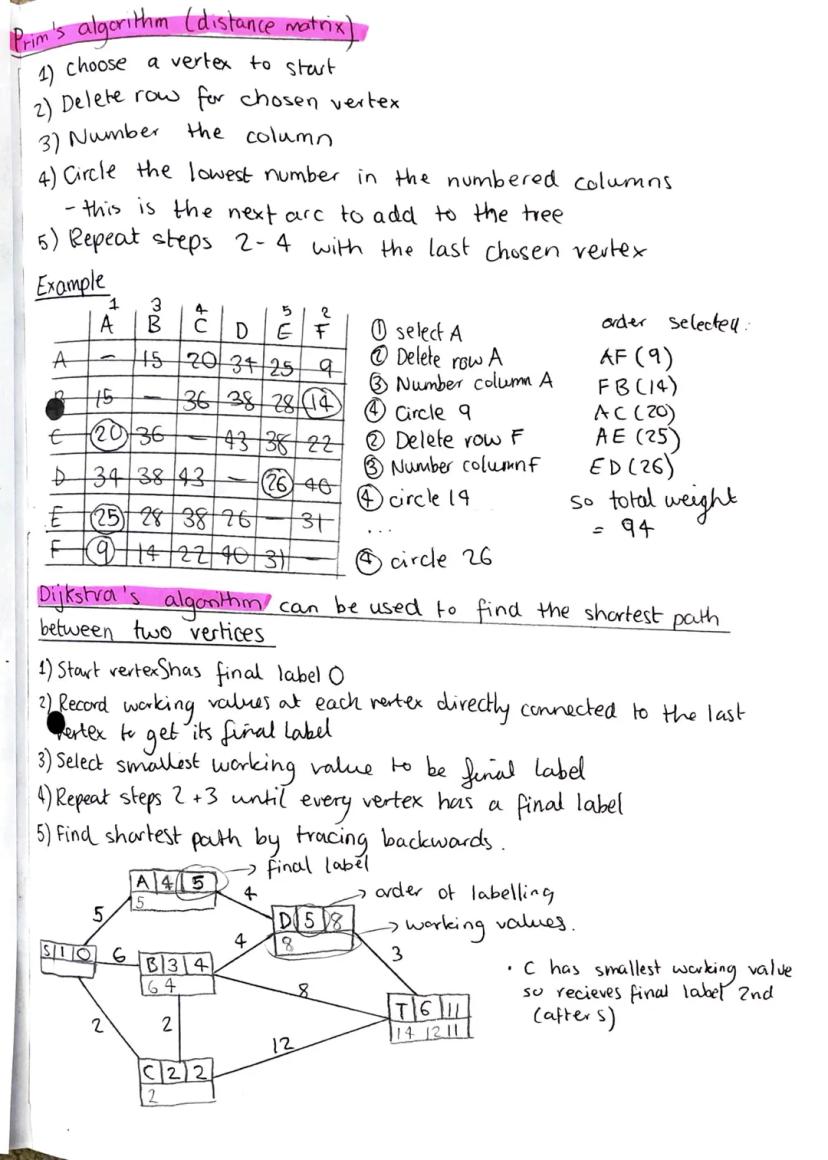 Prim's algorithm (distance matrix)
1) Choose a vertex to start
2) Delete row for chosen vertex
3) Number the column
4) Circle the lowest number in the numbered columns
- this is the next arc to add to the tree
5) Repeat steps 2-4 with the last chosen vertex
Example
1 3 4 5 2
A B C D E F
A - 15 20 34 25 9
B 15 - 36 38 28 14
C 20 36 - 43 38 22
D 34 38 43 - 26 40
E 25 28 38 26 - 31
F 9 14 22 40 31 -
① select A
② Delete row A
③ Number column A
④ Circle 9
② Delete row F
③ Number column F
④ circle 14
...
④ circle 26
order selected:
AF (9)
FB (14)
AC (20)
AE (25)
ED (26)
so total weight
= 94
Dijkstra's algorithm can be used to find the shortest path
between two vertices
1) Start vertex S has final label 0
2) Record working values at each vertex directly connected to the last
vertex to get its final label
3) Select smallest working value to be final label
4) Repeat steps 2+3 until every vertex has a final label
5) Find shortest path by tracing backwards.
→ final label
A 4 5
5
4
→ order of labelling
5
D 5 8
8
→ working values.
S 1 0
6
B 3 4
6 4
4
3
• C has smallest working value
so recieves final label 2nd
(after S)
8
T 6 11
14 12 11
2
2
12
C 2 2
2